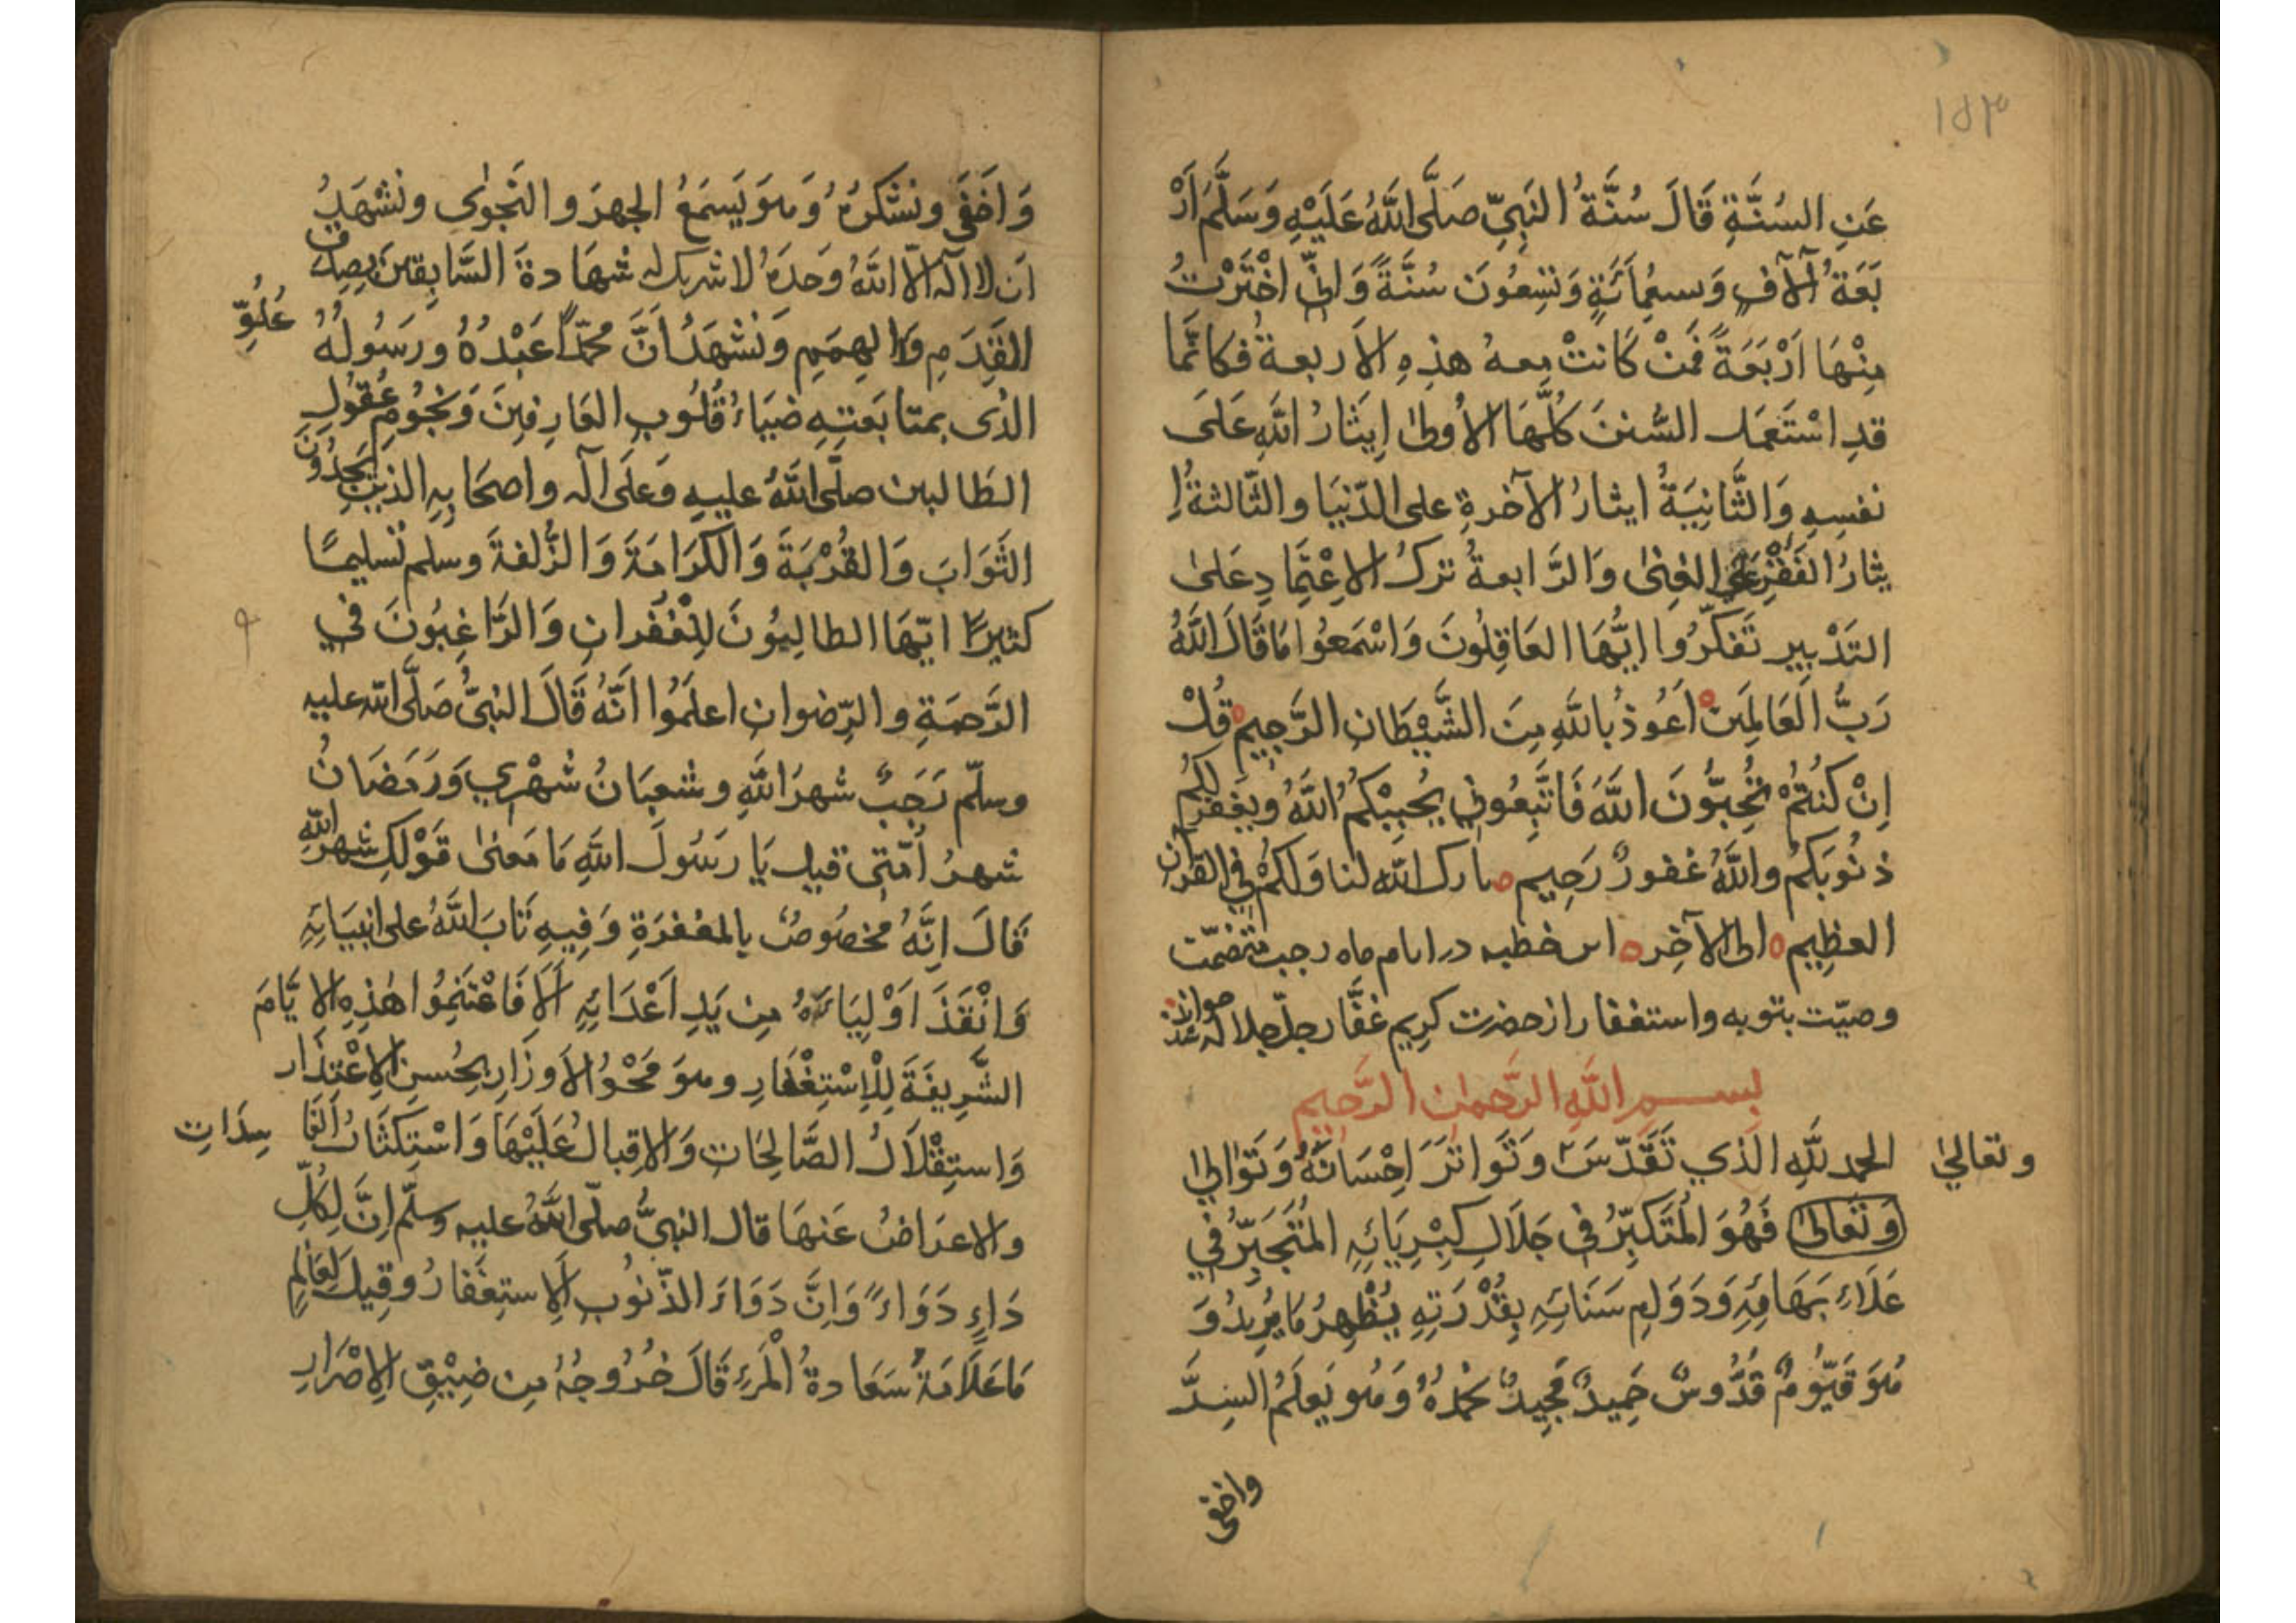 ١٥٣
عَنِ السُنَّةِ قَالَ سُنَّةُ النَّبِيِّ صَلَّى اللَّهُ عَلَيْهِ وَسَلَّمَ اَرْ
بَعَةُ آلَافٍ وَسَبْعُمِائَةٍ وَتِسْعُونَ سُنَّةً وَانِّى اخْتَرْتُ
مِنْهَا اَرْبَعَةً فَمَنْ كَانَتْ معهُ هٰذِهِ الاَربعةُ فَكَانَّمَا
قدِ اسْتَعْمَلَ السُّنَنَ كُلَّهَا الاُولٰى اِيثَارُ اللَّهِ عَلَى
نفسِهِ وَالثَّانِيَةُ ايثارُ الآخرةِ على الدّنيَا والثّالثةُ اِ
يثارُ الفَقْرِ عَلَى الغِنٰى وَالرَّابعةُ تركُ الاِعْتِمَادِ عَلىٰ
التَدْبِيرِ تَفَكَّرُوا ايُّهَا العَاقِلُونَ وَاسْمَعُوا مَا قَالَ اللَّهُ
رَبُّ العَالَمِينَ اَعُوذُ بِاللَّهِ مِنَ الشَّيْطَانِ الرَّجِيمِ قُلْ
اِنْ كُنْتُمْ تُحِبُّونَ اللَّهَ فَاتَّبِعُونِي يُحْبِبْكُمُ اللَّهُ وَيَغْفِرْ لَكُمْ
ذنُوبَكُمْ واللَّهُ غفورٌ رَحِيم بارك اللّه لنا وَلَكُمْ فِي القرآن
العظِيم الى الآخِر اين خطبه در ايام ماه رجب متضمّن
وصيّت بتوبه واستغفار از حضرت كريم غفّار جلّ جلاله
بسم اللَّهِ الرَّحمٰن الرَّحِيم
الحمد للَّهِ الَّذي تَقَدَّسَ وتَوَاتَرَ اِحْسَانُهُ وَتَوَالىٰ
وتعالىٰ
وَتَعَالىٰ فَهُوَ المُتَكَبِّرُ فِي جَلَالِ كِبْرِيَائِهِ المُتَجَبِّرُ فِي
عَلَاءِ بَهَائِهِ وَدَوَامِ سَنَائِهِ بِقُدْرَتِهِ يُظْهِرُ مَا يُرِيدُ وَ
هُوَ قَيُّومٌ قُدُّوسٌ حَمِيدٌ مَجِيدٌ نحْمَدُهُ وَهُو يَعلَمُ السِرَّ
واخفى
وَاَخفَى ونشكرُهُ وَهوَ يَسمَعُ الجهرَ والنَّجوٰى ونَشْهَدُ
اَن لا اله الّا اللّهُ وَحدَهُ لا شريك له شهَادةَ السَّابِقينَ بِصِدْقِ
القَدَمِ وَالهِمَمِ وَنَشْهَدُ اَنَّ محمّدًا عَبْدُهُ ورَسُولُهُ
عُلُوِّ
الذى بمتابَعَتِهِ ضيَاءُ قُلُوبِ العَارِفِينَ وَنجُومِ عُقُولِ
الطَالبين صلَّى اللّهُ عليهِ وَعَلَى آله واصحَابِهِ الذين يَجِدُونَ
الثَّوَابَ وَالقُرْبَةَ وَالكَرَامَةَ وَالزُّلفةَ وسلم تَسليمًا
كثيرًا ايّهَا الطالِبُونَ لِلْغُفْرانِ وَالرَّاغِبُونَ فِي
الرَّحمَةِ والرِّضوانِ اعلَمُوا اَنَّهُ قَالَ النبىُّ صَلَّى اللّه عليه
وسلّم رَجَبٌ شهرُ اللّهِ وشعبَانُ شَهْرِي وَرَمَضَانُ
شهرُ اُمَّتى قيل يَا رسُولَ اللّهِ مَا مَعنىٰ قَوْلِكَ شهر اللّهِ
قَالَ اِنَّهُ مَخصُوصٌ بِالمغفرَةِ وَفِيهِ تَابَ اللّهُ على انبيَائِهِ
وَانْقَذَ اَوْلِيَاءَهُ مِن يَدِ اَعْدَائِهِ اَلَا فَاغْتَنِمُوا هٰذِهِ الاَيَّامَ
الشَّرِيفَةَ لِلْاِسْتِغْفَارِ وهوَ مَحْوُ الاَوزَارِ بِحُسنِ الاِعْتِذَارِ
وَاستِقْلَالُ الصَّالِحَاتِ وَالاِقبالُ عَلَيْهَا وَاسْتِكثَارُ الفَا
سِدَاتِ
والاعرَاضُ عَنهَا قال النبىُّ صلّى اللّهُ عليه وسلّم اِنَّ لِكُلِّ
دَاءٍ دَوَاءً وَاِنَّ دَوَاءَ الذّنوُبِ الاِستِغفَارُ وقِيلَ لِعَالِمٍ
مَا عَلَامَةُ سَعَادةُ الْمَرءِ قَالَ خُرُوجُهُ مِن ضِيْقِ الاِصْرَارِ